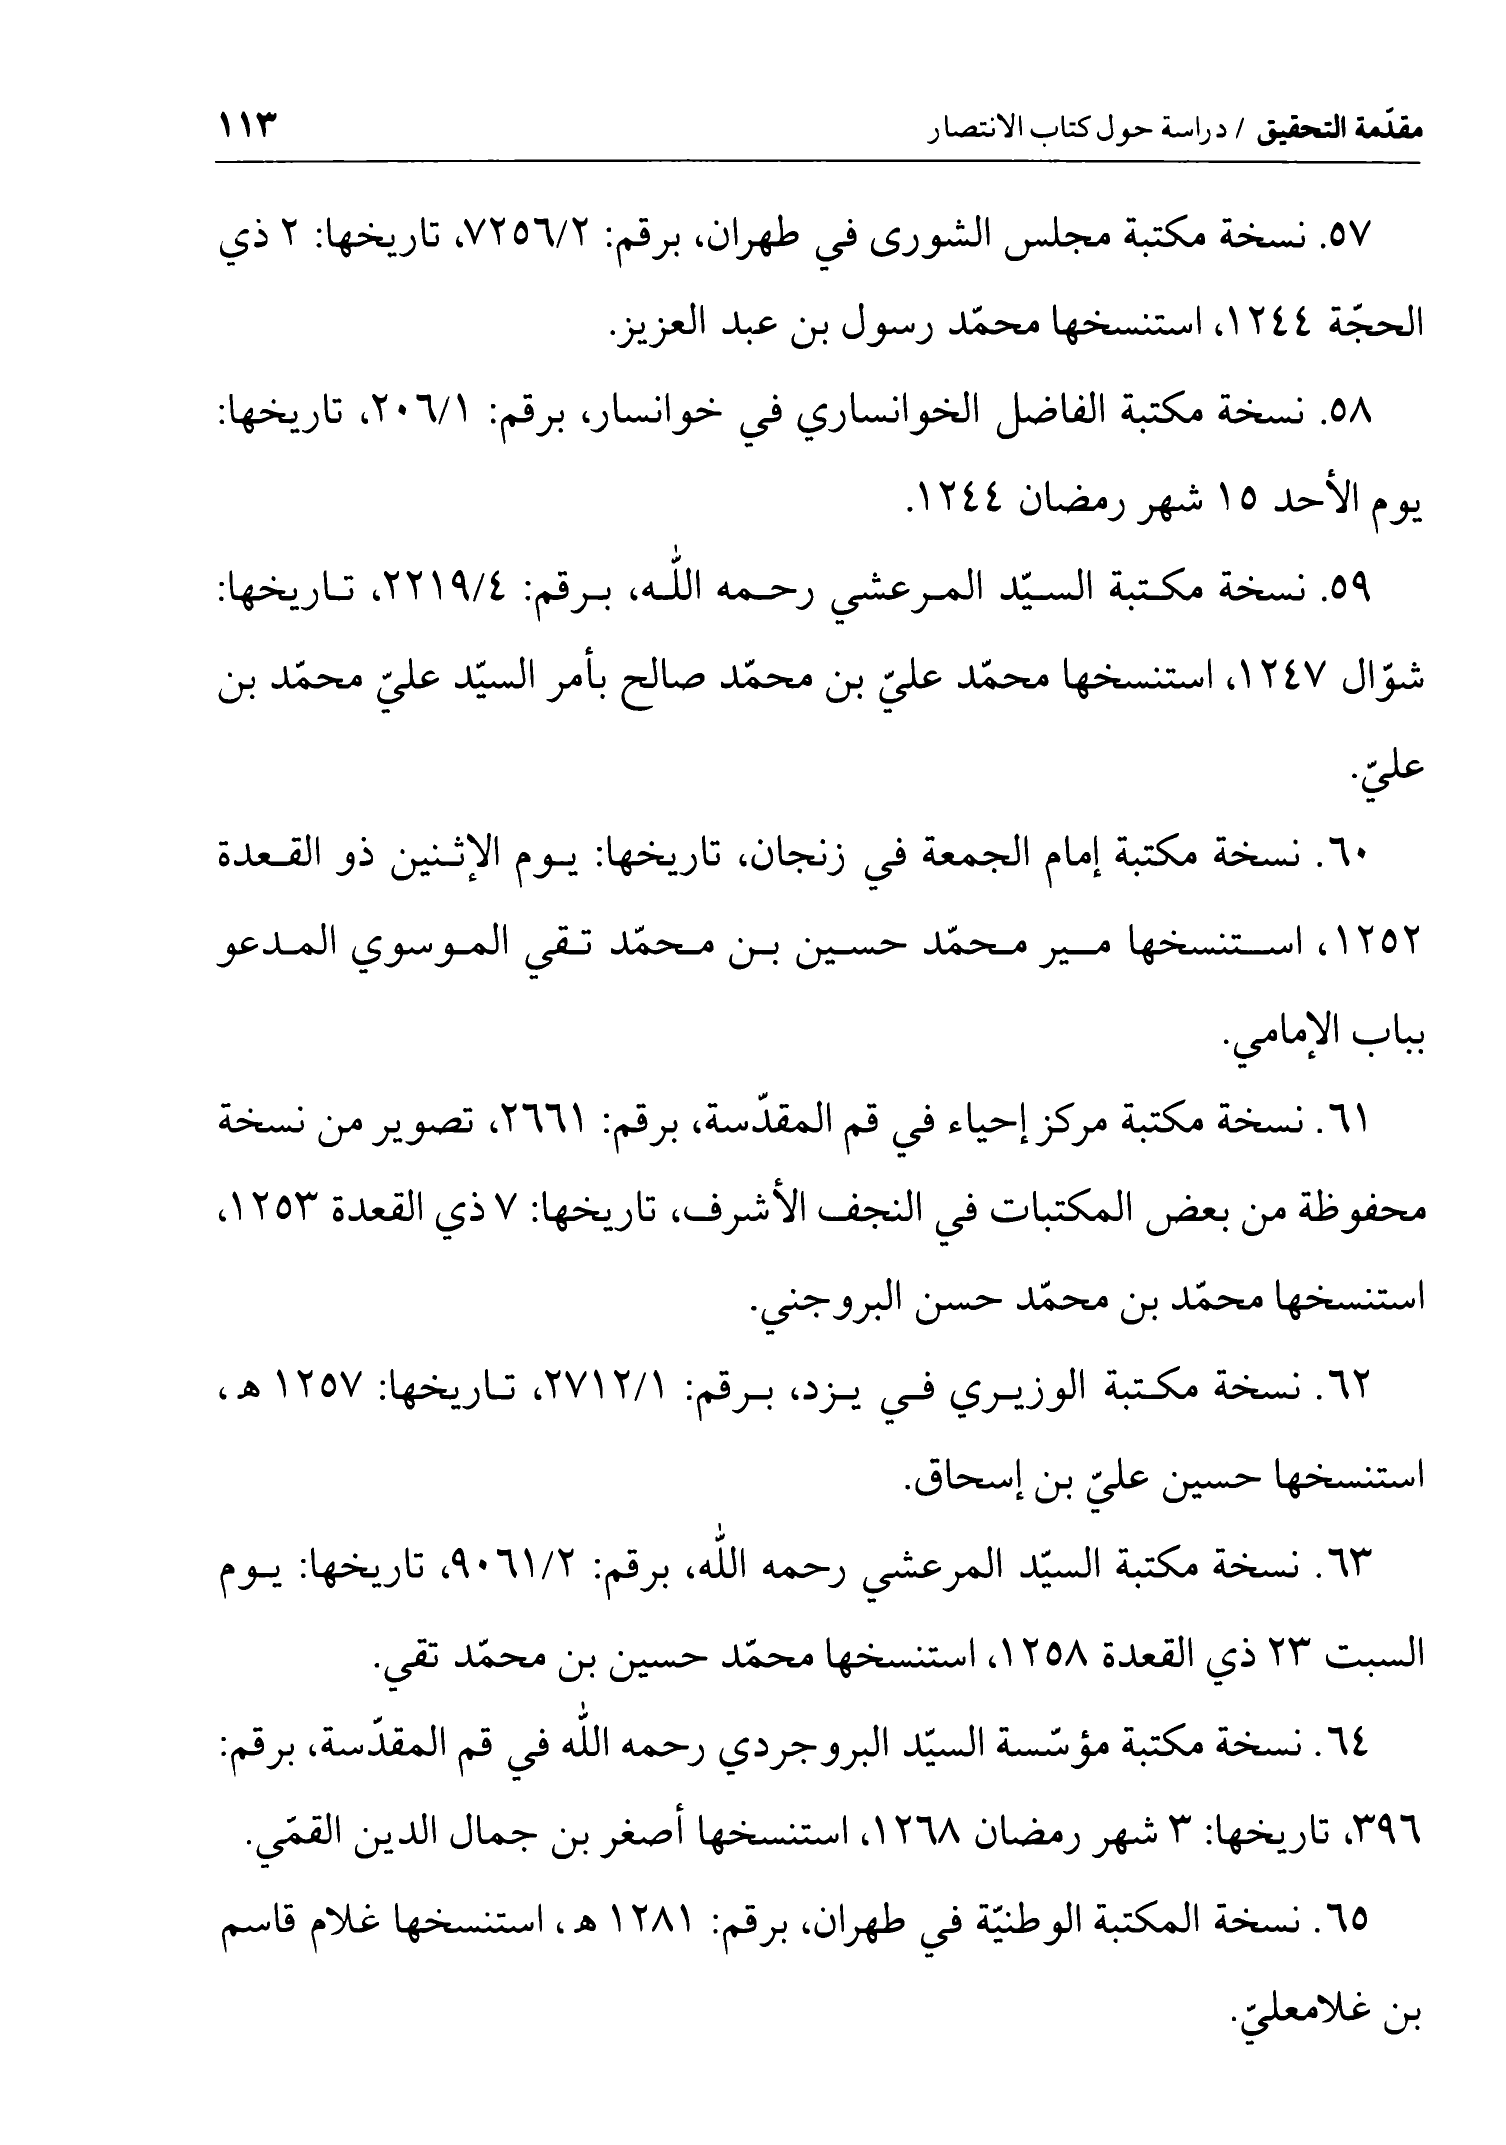 مقدّمة التحقيق / دراسة حول كتاب الانتصار ١١٣
٥٧. نسخة مكتبة مجلس الشورى في طهران، برقم: ٧٢٥٦/٢، تاريخها: ٢ ذي
الحجّة ١٢٤٤، استنسخها محمّد رسول بن عبد العزيز.
٥٨. نسخة مكتبة الفاضل الخوانساري في خوانسار، برقم: ٢٠٦/١، تاريخها:
يوم الأحد ١٥ شهر رمضان ١٢٤٤.
٥٩. نسخة مكتبة السيّد المرعشي رحمه اللّٰه، برقم: ٢٢١٩/٤، تاريخها:
شوّال ١٢٤٧، استنسخها محمّد عليّ بن محمّد صالح بأمر السيّد عليّ محمّد بن
عليّ.
٦٠. نسخة مكتبة إمام الجمعة في زنجان، تاريخها: يوم الإثنين ذو القعدة
١٢٥٢، استنسخها مير محمّد حسين بن محمّد تقي الموسوي المدعو
بباب الإمامي.
٦١. نسخة مكتبة مركز إحياء في قم المقدّسة، برقم: ٢٦٦١، تصوير من نسخة
محفوظة من بعض المكتبات في النجف الأشرف، تاريخها: ٧ ذي القعدة ١٢٥٣،
استنسخها محمّد بن محمّد حسن البروجني.
٦٢. نسخة مكتبة الوزيري في يزد، برقم: ٢٧١٢/١، تاريخها: ١٢٥٧ هـ،
استنسخها حسين عليّ بن إسحاق.
٦٣. نسخة مكتبة السيّد المرعشي رحمه اللّٰه، برقم: ٩٠٦١/٢، تاريخها: يوم
السبت ٢٣ ذي القعدة ١٢٥٨، استنسخها محمّد حسين بن محمّد تقي.
٦٤. نسخة مكتبة مؤسّسة السيّد البروجردي رحمه اللّٰه في قم المقدّسة، برقم:
٣٩٦، تاريخها: ٣ شهر رمضان ١٢٦٨، استنسخها أصغر بن جمال الدين القمّي.
٦٥. نسخة المكتبة الوطنيّة في طهران، برقم: ١٢٨١ هـ، استنسخها غلام قاسم
بن غلامعليّ.